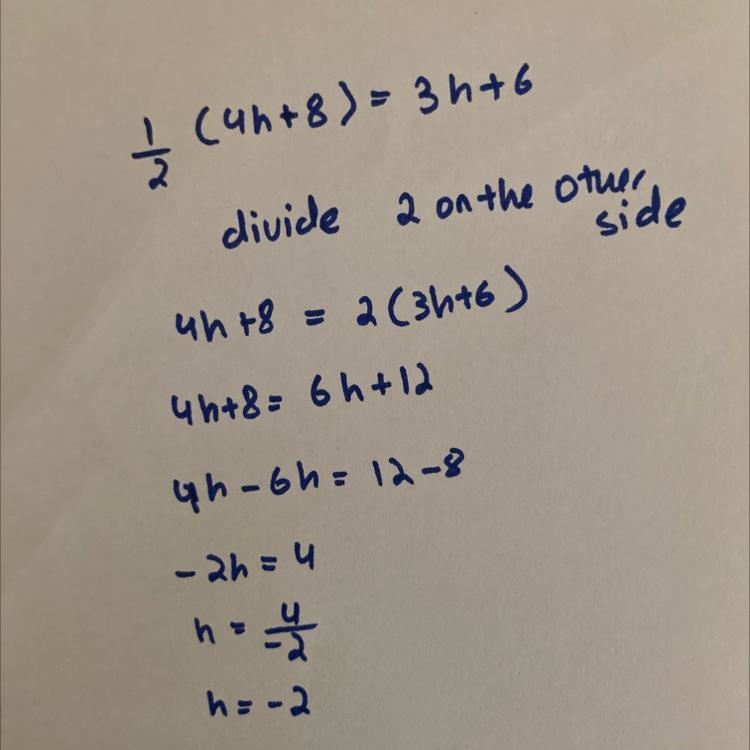 1/2 (4h+8) = 3h+6
divide 2 on the other side
4h+8 = 2(3h+6)
4h+8 = 6h+12
4h-6h = 12-8
-2h = 4
h = 4/-2
h = -2